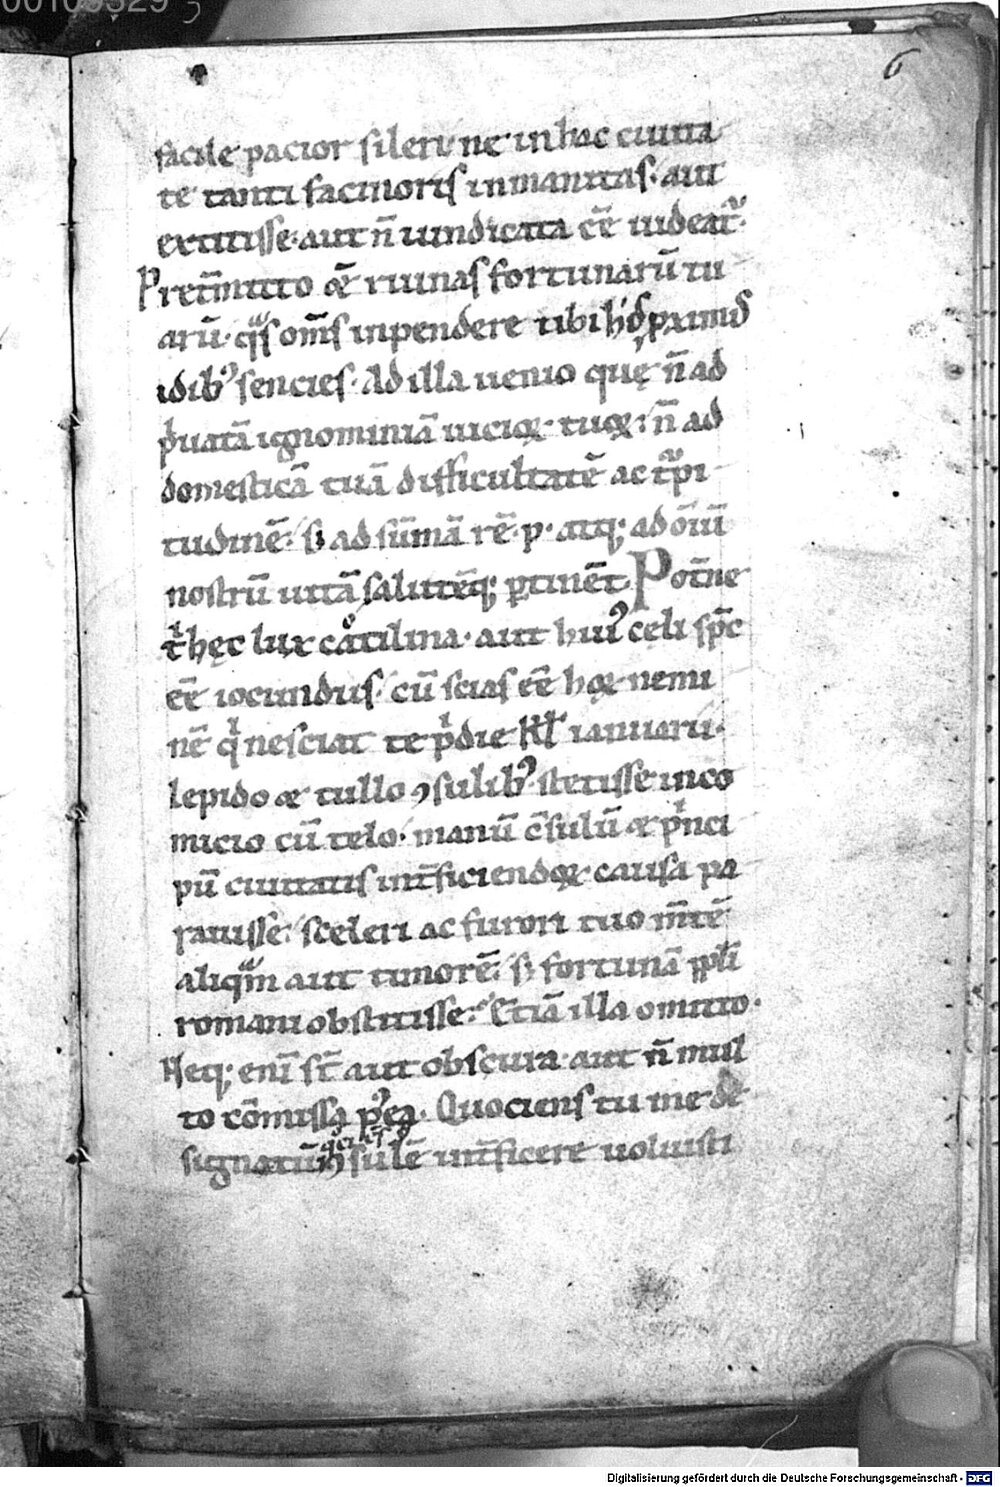 00109329 3
6
facile pacior sileri ne in hac ciuita
te tanti facinoris inmanitas· aut
extitisse· aut n̄ uindicata eē uideat᷑·
Pret̄mitto & ruinas fortunarū tu
arū· q̄s om̄s inpendere tibi ꝓximis
idibꝰ sencies· Ad illa uenio quę n̄ ad
p̍uatā ignominiā uicioꝝ· tuoꝝ· n̄ ad
domesticā tuā difficultatē ac t᷑pi
tudinē· s; ad sūmā rē·p· atq; ad oīuī
nostrū uitā salutēq; ꝑtinēt Potne
t̍ hęc lux catilina· aut huiꝰ cęli sp̄c
eē iocundus· cū scias eē hoꝝ nemi
nē q̍ nesciat te p̍die kl̄ ianuarii·
lepido & tullo ꝯsulibꝰ stetisse inco
micio cū telo· manū c̄sulū & p̍nci
pū ciuitatis int̄ficiendoꝝ causa pa
rauisse· sceleri ac furori tuo m̄tē
aliqm̄ aut timorē· s; fortunā ppl̄i
romani obstitisse· Etiā illa omitto·
Neq; enī st̄ aut obscura· aut n̄ mul
to cōmissa pꝰea· Quociens tu me de
signatū ꝯsulē int̄ficere uoluisti
Digitalisierung gefördert durch die Deutsche Forschungsgemeinschaft - DFG